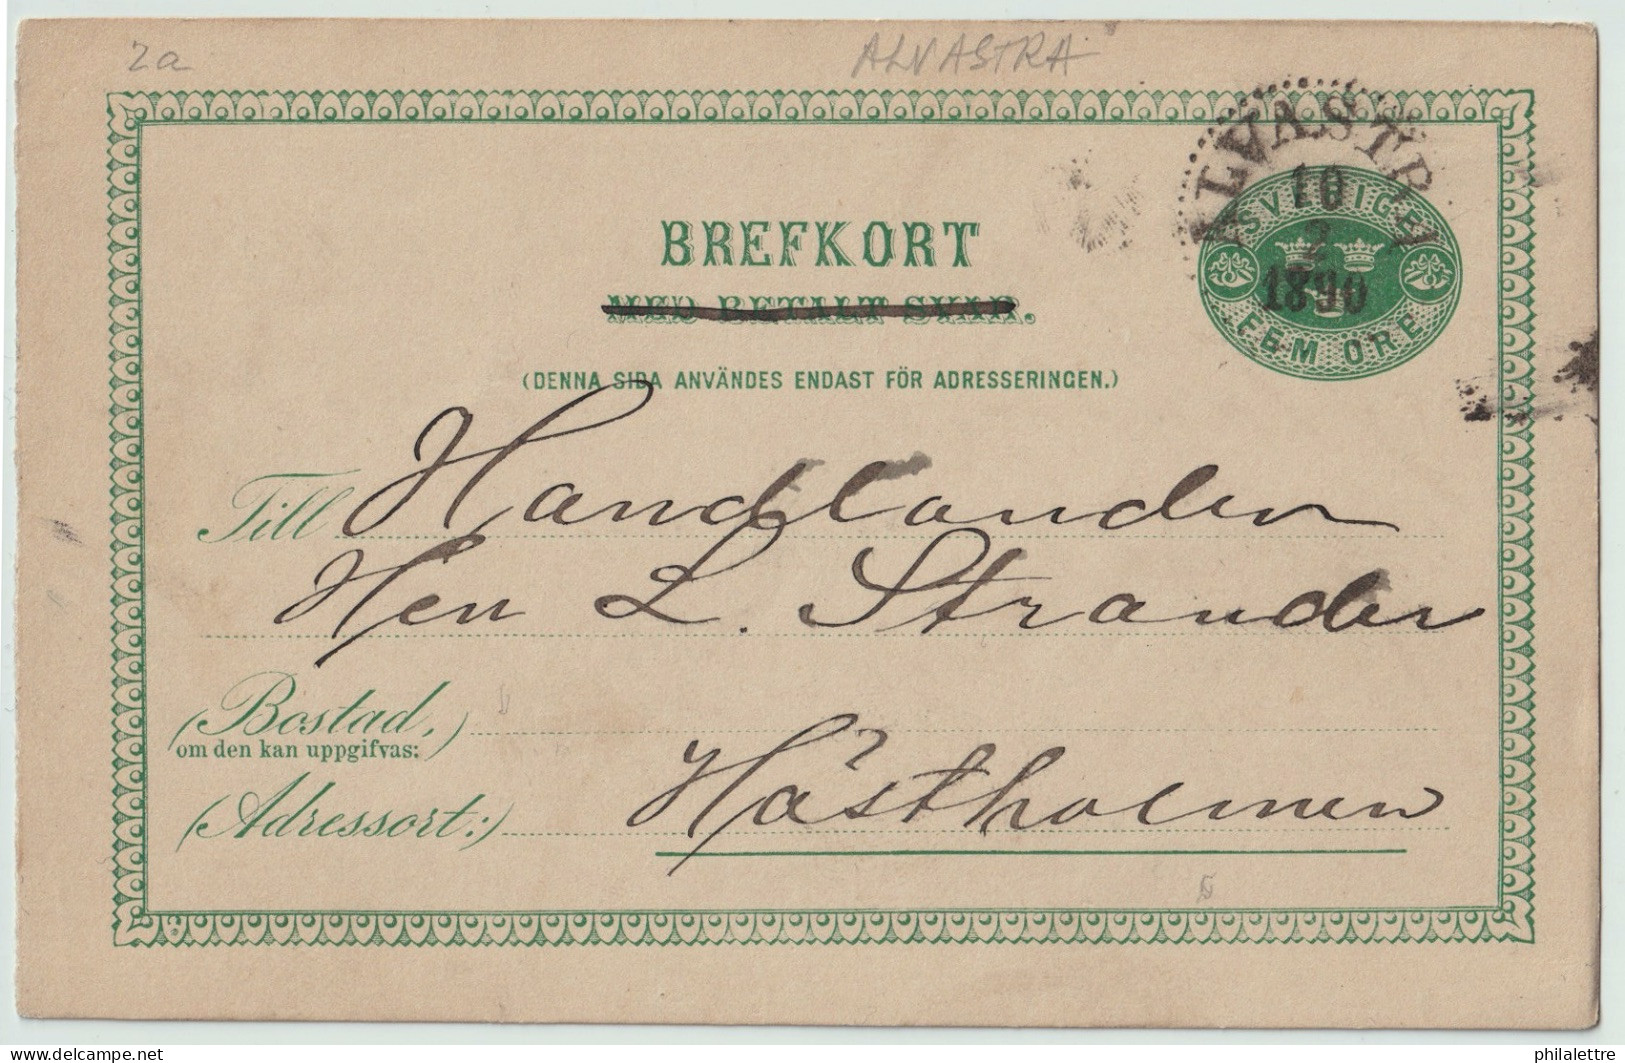 2a
ALVASTRA
ALVASTRA
10
2
1890
SVERIGE
FEM ÖRE
BREFKORT
MED BETALT SVAR.
(DENNA SIDA ANVÄNDES ENDAST FÖR ADRESSERINGEN.)
Till Handlanden
Herr L. Strander
(Bostad,)
om den kan uppgifvas:
(Adressort:) Hästholmen
delcampe.net
philalettre